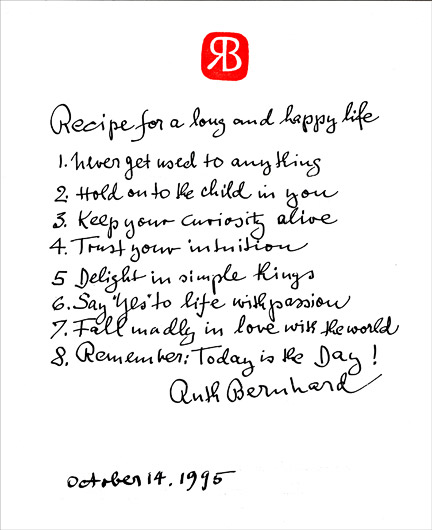 RB
Recipe for a long and happy life
1. Never get used to anything
2. Hold on to the child in you
3. Keep your curiosity alive
4. Trust your intuition
5 Delight in simple things
6. Say "Yes" to life with passion
7. Fall madly in love with the world
8. Remember: Today is the Day!
Ruth Bernhard
October 14. 1995